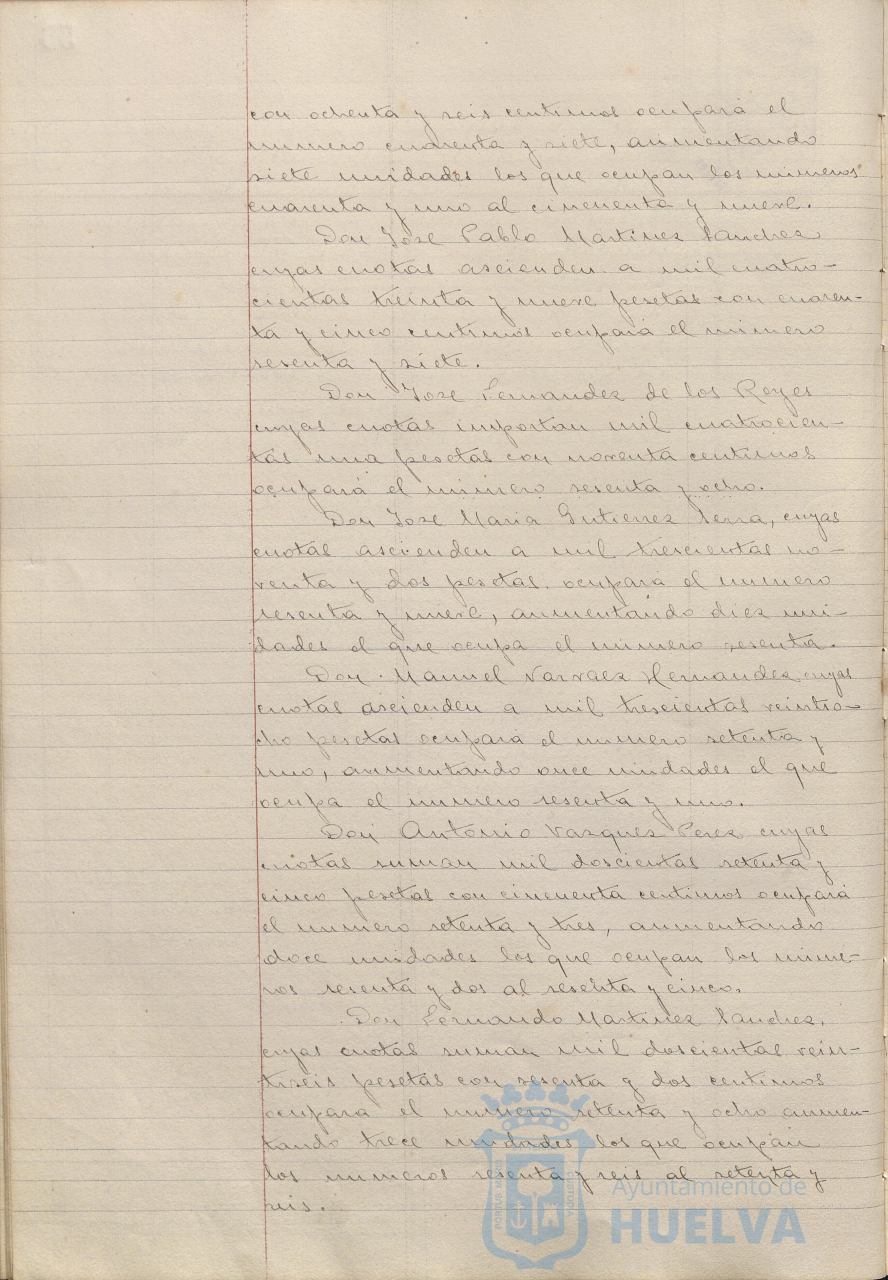 con ochenta y seis centimos ocupará el
numero cuarenta y siete, aumentando
siete unidades los que ocupan los números
cuarenta y uno al cincuenta y nueve.
Don José Pablo Martinez Sanchez
cuyas cuotas ascienden a mil cuatro-
cientas treinta y nueve pesetas con cuaren-
ta y cinco centimos ocupará el número
sesenta y siete.
Don José Fernandez de los Reyes
cuyas cuotas importan mil cuatrocien-
tas una pesetas con noventa centimos
ocupará el número sesenta y ocho.
Don José Maria Gutierrez Serra, cuyas
cuotas ascienden a mil trescientas no-
venta y dos pesetas ocupará el numero
sesenta y nueve, aumentando diez uni-
dades el que ocupa el número sesenta.
Don Manuel Narvaez Hernandez, cuyas
cuotas ascienden a mil trescientas veintio-
cho pesetas ocupará el numero setenta y
uno, aumentando once unidades el que
ocupa el numero sesenta y uno.
Don Antonio Vazquez Perez cuyas
cuotas suman mil doscientas setenta y
cinco pesetas con cincuenta centimos ocupará
el numero setenta y tres, aumentando
doce unidades los que ocupan los núme-
ros sesenta y dos al sesenta y cinco.
Don Fernando Martinez Sanchez,
cuyas cuotas suman mil doscientas vein-
tiseis pesetas con sesenta y dos centimos
ocupara el numero setenta y ocho aumen-
tando trece unidades los que ocupan
los numeros sesenta y seis al setenta y
seis.
PORTUS MARIS
CUSTODIA
Ayuntamiento de
HUELVA